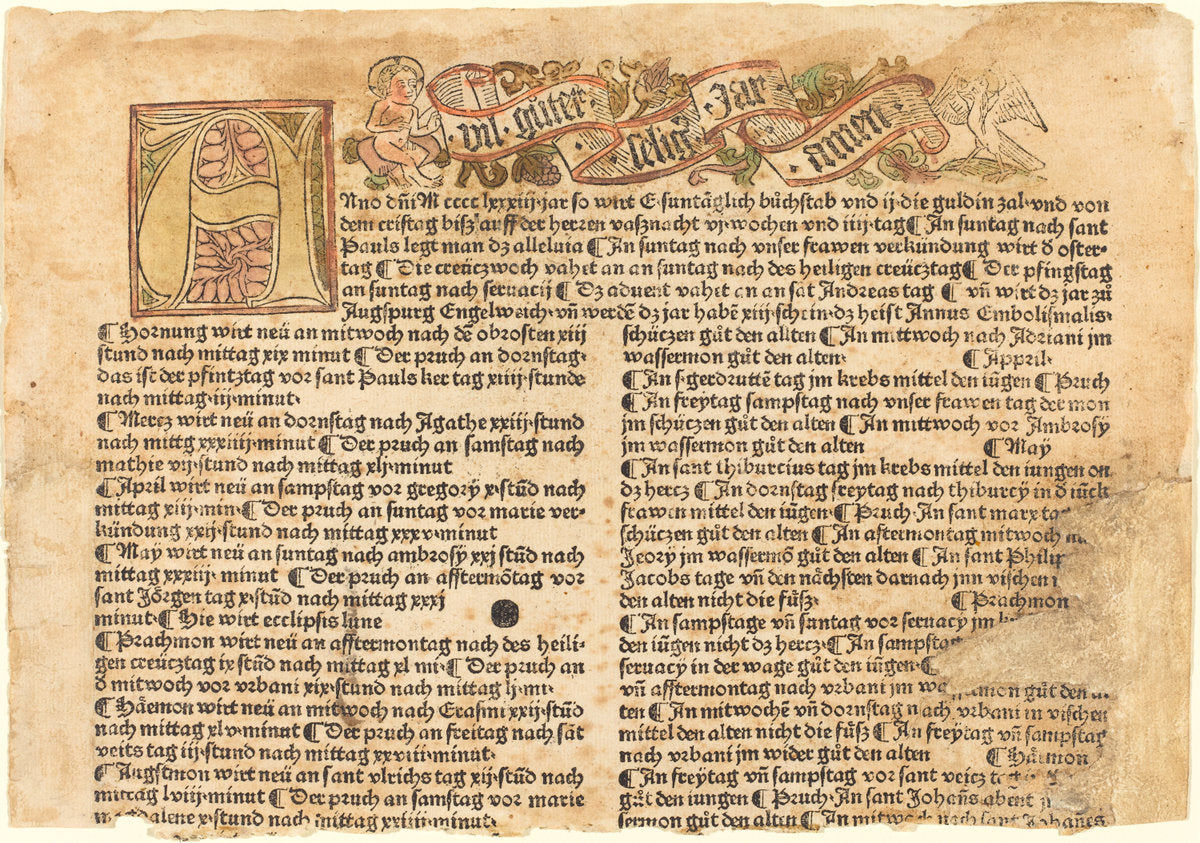 ·vil·gůter·
selig͛
·Jar·
·amen·
ANno dn̄i M cccc lxxxiij·jar so wirt E·suntåglich bůchstab vnd ij·die guldin zal·vnd von
dem cristag bisz auff der herren vasznacht vj·wochen vnd iiij·tag ¶ An suntag nach sant
Pauls legt man dz alleluia ¶ An suntag nach vnser frawen verkündung wirt d̄ oster-
tag ¶ Die creüczwoch vahet an an suntag nach des heiligen creücztag ¶ Der pfingstag
an suntag nach seruacij ¶ Dz aduent vahet an an sāt Andreas tag ¶ vn̄ wirt dz jar zů
Augspurg Engelweich·vn̄ werdē dz jar habē xiij·schein·dz heist Annus Embolismalis·
¶ Hornung wirt neü an mitwoch nach dē obrosten xiij
stund nach mittag xix minut ¶ Der pruch an dornstag·
das ist der pfintztag vor sant Pauls ker tag xiiij·stunde
nach mittag·iij·minut·
¶ Mercz wirt neü an dornstag nach Agathe xxiij·stund
nach mittg xxxiiij·minut ¶ Der pruch an samstag nach
mathie vij·stund nach mittag xlj·minut
¶ April wirt neü an sampstag vor gregorÿ x·stūd nach
mittag xiij·min·¶ Der pruch an suntag vor marie ver-
kündung xxij·stund nach mittag xxxv·minut
¶ May wirt neü an suntag nach ambrosÿ xxj stūd nach
mittag xxxiij·minut ¶ Der pruch an afftermōtag vor
sant Jőrgen tag x·stūd nach mittag xxxj
minut·¶ Hie wirt ecclipsis lune
¶ Prachmon wirt neü an afftermontag nach des heili-
gen creücztag ix stūd nach mittag xl mi·¶ Der pruch an
d̄ mitwoch vor vrbani xix·stund nach mittag lj·mi·
¶ Håemon wirt neü an mitwoch nach Erasmi xxij·stūd
nach mittag xlv·minut ¶ Der pruch an freitag nach sāt
veits tag iij·stund nach mittag xxviii·minut·
¶ Augstmon wirt neü an sant vlrichs tag xij·stūd nach
mittag lviij·minut ¶ Der pruch an samstag vor marie
magdalene x·stund nach mittag xxiiij·minut·
schüczen gůt den allten ¶ An mittwoch nach Adriani jm
wassermon gůt den alten·
¶ Appril·
¶ An s·gerdruttē tag jm krebs mittel den iüngen ¶ Pruch
¶ An freytag sampstag nach vnser frawen tag der mon
jm schüczen gůt den alten ¶ An mittwoch vor Ambrosÿ
jm wassermon gůt den alten
¶ May
¶ An sant thiburcius tag jm krebs mittel den iungen on
dz hercz ¶ An dornstag freytag nach thiburcÿ in d̄ iūck
frawen mittel den iügen·¶ Pruch·An sant marx tag
schüczen gůt den alten ¶ An aftermontag mitwoch
Jeorÿ jm wassermō gůt den alten ¶ An sant Philip
Jacobs tage vn̄ den nåchsten darnach jnn vischen
den alten nicht die füsz·
¶ Prachmon
¶ An sampstage vn̄ suntag vor seruacy jm
den iügen nicht dz hercz·¶ An sampstag
seruacÿ in der wage gůt den iügen·¶
vn̄ afftermontag nach vrbani jm wassermon gůt den
ten ¶ An mitwochē vn̄ dornstag nach vrbani in vischen
mittel den alten nicht die füsz ¶ An freytag vn̄ sampstag
nach vrbani jm wider gůt den alten
¶ Håemon
¶ An freÿtag vn̄ sampstag vor sant veicz
gůt den iungen ¶ Pruch·An sant Johan̄s abent
sermon gůt den alten ¶ An mitwoch nach sant Johan̄es